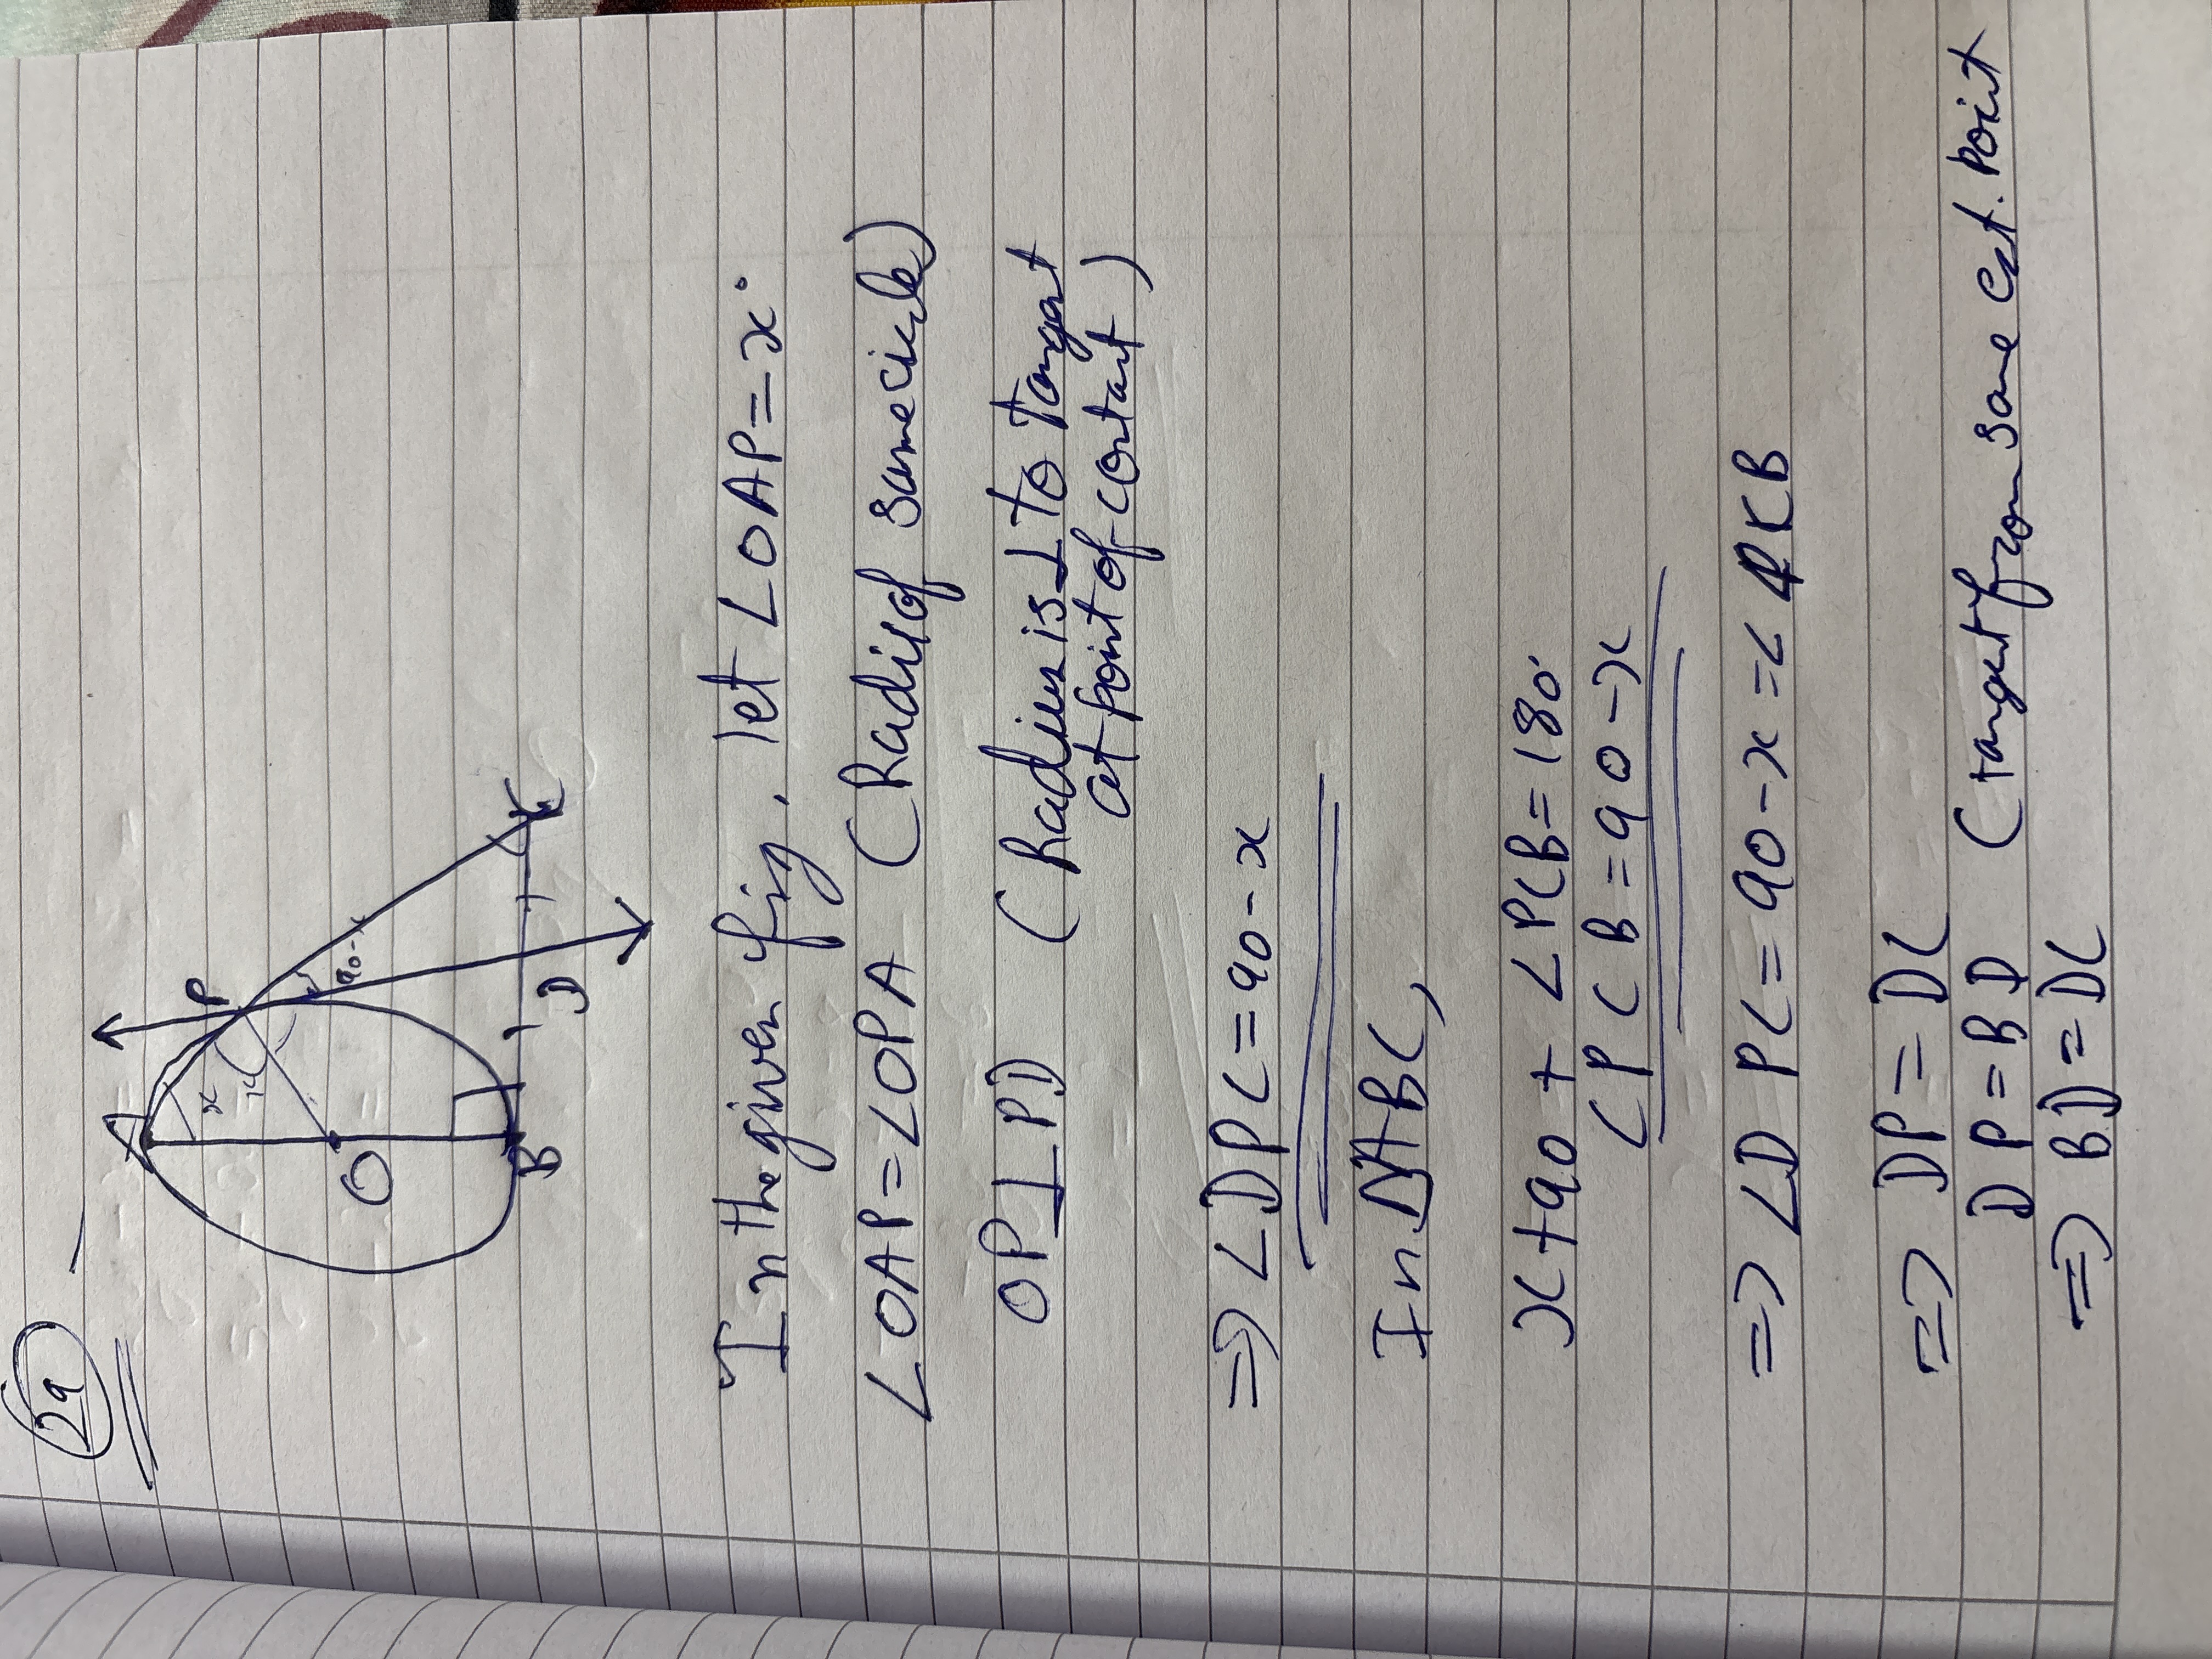 29
A
P
x
x
90-x
O
B
D
C
In the given fig, let ∠OAP=x°
∠OAP=∠OPA (Radii of same circle)
OP⊥PD (Radius is ⊥ to Tangent
at point of contact)
⇒ ∠DPC=90-x
In △ABC,
x+90 + ∠PCB=180°
∠PCB=90-x
⇒ ∠DPC=90-x=∠PCB
⇒ DP=DC
DP=BD (tangent from same ext. Point
⇒ BD=DC